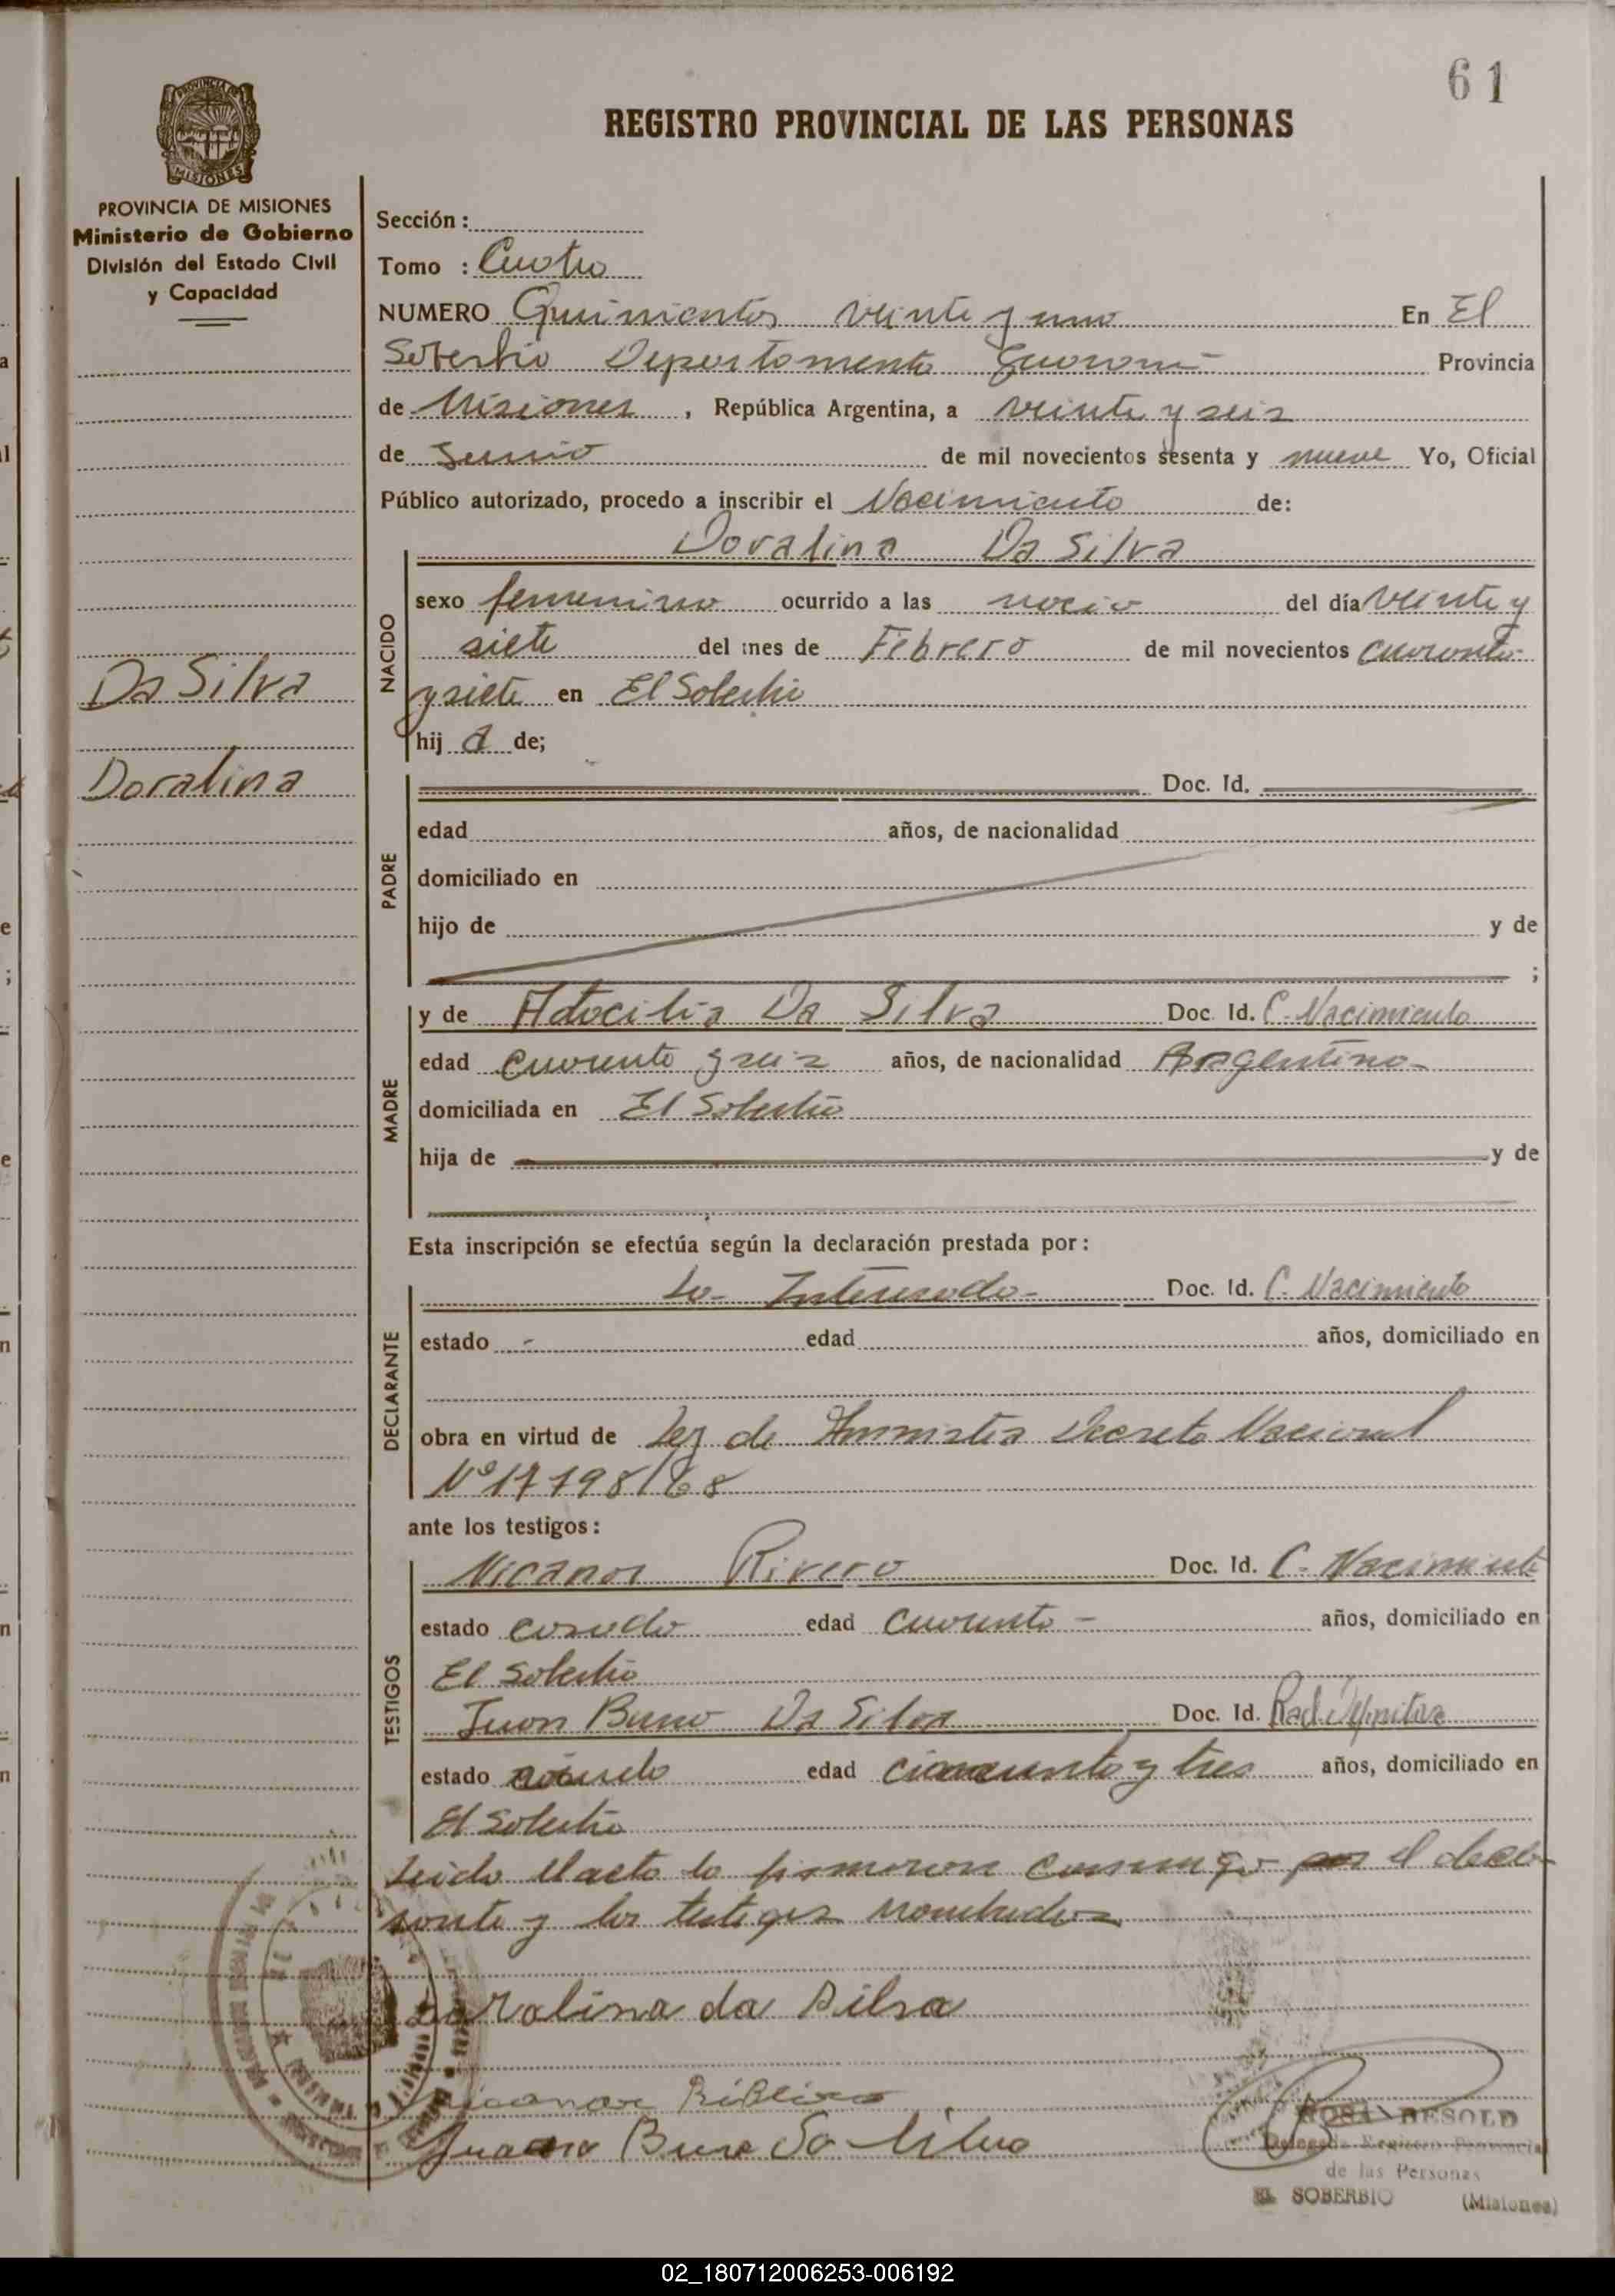 61
REGISTRO PROVINCIAL DE LAS PERSONAS
PROVINCIA DE MISIONES
Ministerio de Gobierno
División del Estado Civil
y Capacidad
Da Silva
Doralina
Sección :
Tomo : Cuatro
NUMERO Quinientos veinte y uno En El
Soberbio Departamento Guarani Provincia
de Misiones, República Argentina, a veinte y seis
de Junio de mil novecientos sesenta y nueve Yo, Oficial
Público autorizado, procedo a inscribir el Nacimiento de:
Doralina Da Silva
NACIDO
sexo femenino ocurrido a las del día veinte y
siete del mes de Febrero de mil novecientos cuarenta
y siete en El Soberbio
hij a de;
PADRE
Doc. Id.
edad años, de nacionalidad
domiciliado en
hijo de y de
;
MADRE
y de Da Silva Doc. Id. C. Nacimiento
edad cuarenta y seis años, de nacionalidad Argentina
domiciliada en El Soberbio
hija de y de
Esta inscripción se efectúa según la declaración prestada por:
DECLARANTE
La Interesada Doc. Id. C. Nacimiento
estado - edad años, domiciliado en
obra en virtud de Ley de Amnistia Decreto Nacional
Nº 17798/68
ante los testigos:
TESTIGOS
Nicanor Rivero Doc. Id. C. Nacimiento
estado casado edad cuarenta - años, domiciliado en
El Soberbio
Juan Da Silva Doc. Id.
estado edad cincuenta y tres años, domiciliado en
El Soberbio
Leida el acta la firmaron conmigo el decla-
rante y los testigos nombrados
Doralina da Silva
ROSA DESOLD
Delegada Registro Provincial
de las Personas
EL SOBERBIO (Misiones)
02_180712006253-006192